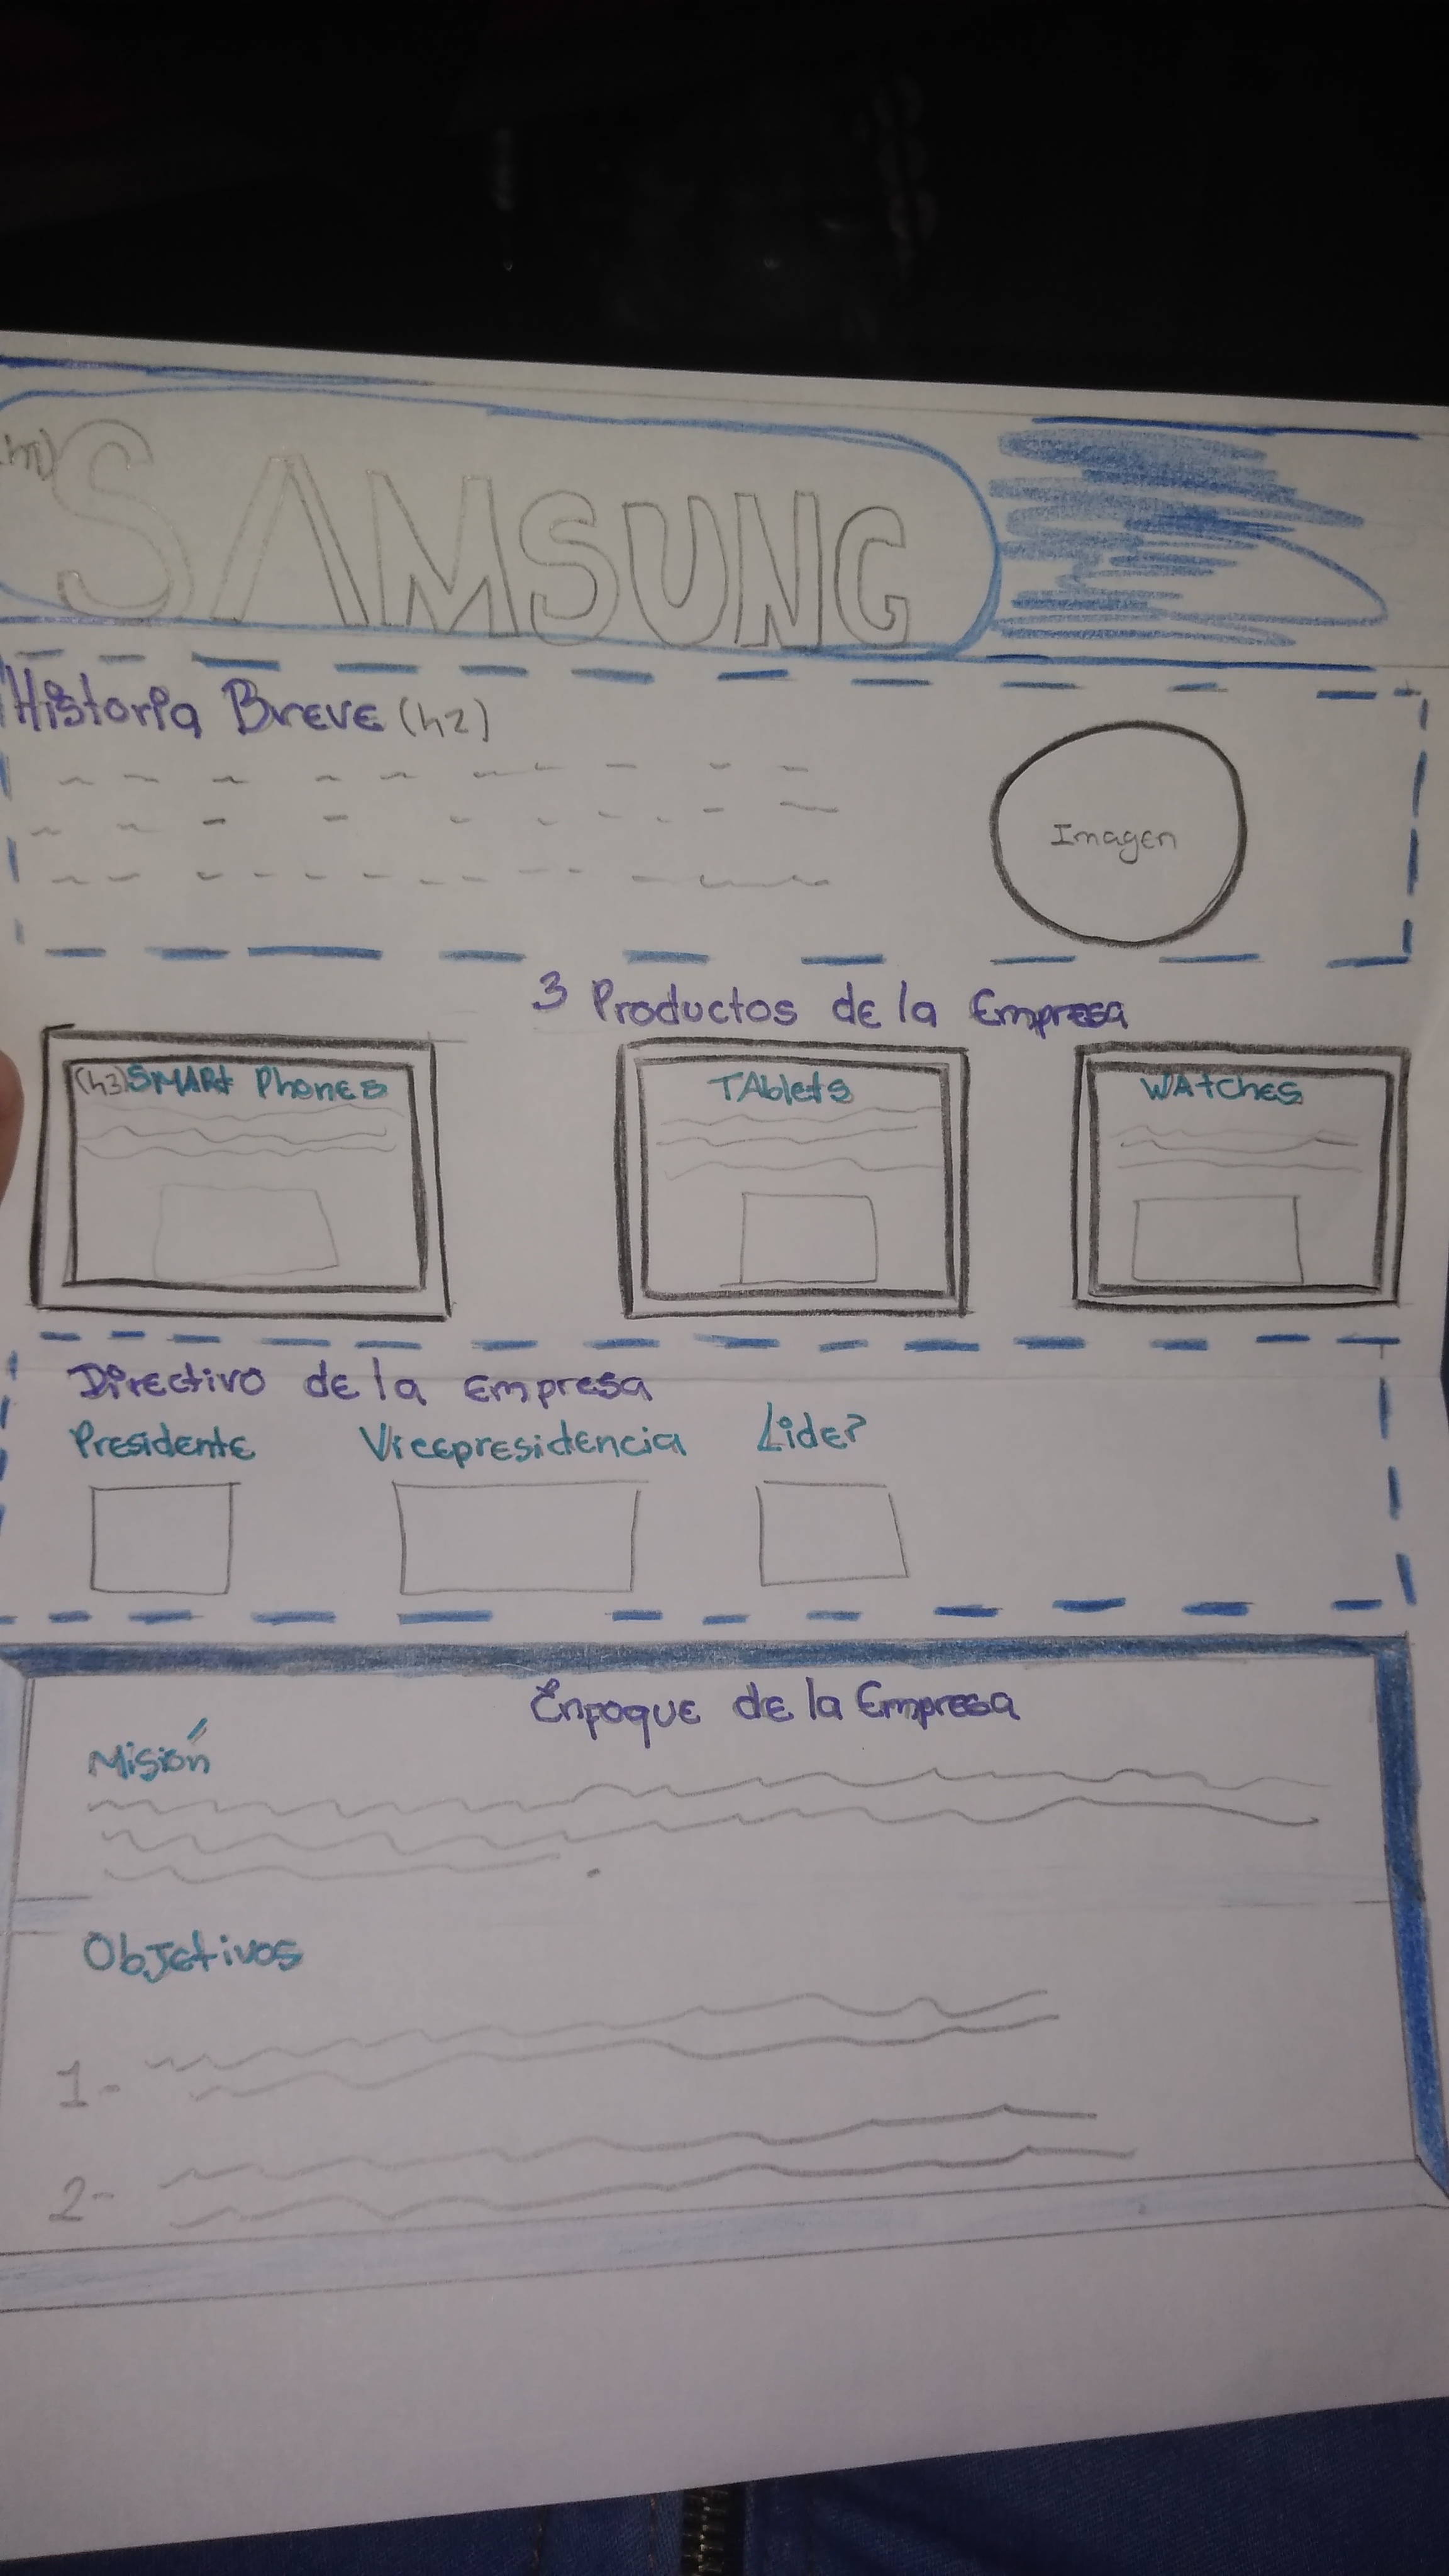 SAMSUNG
Historia Breve (h2)
Imagen
3 Productos de la Empresa
(h3) SMARt PhonEs
TAblets
WAtches
Directivo de la empresa
Presidente
Vicepresidencia
Lider
Enfoque de la Empresa
Misión
Objetivos
1-
2-